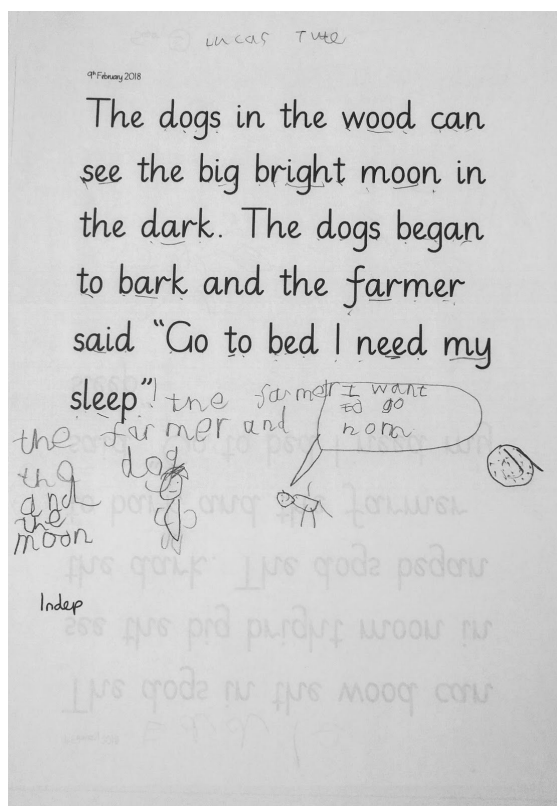 Lucas Tute
9th February 2018
The dogs in the wood can
see the big bright moon in
the dark. The dogs began
to bark and the farmer
said "Go to bed I need my
sleep"! the farmer
I want
to go
hom
the farmer and
the dog
and
the
moon
Indep